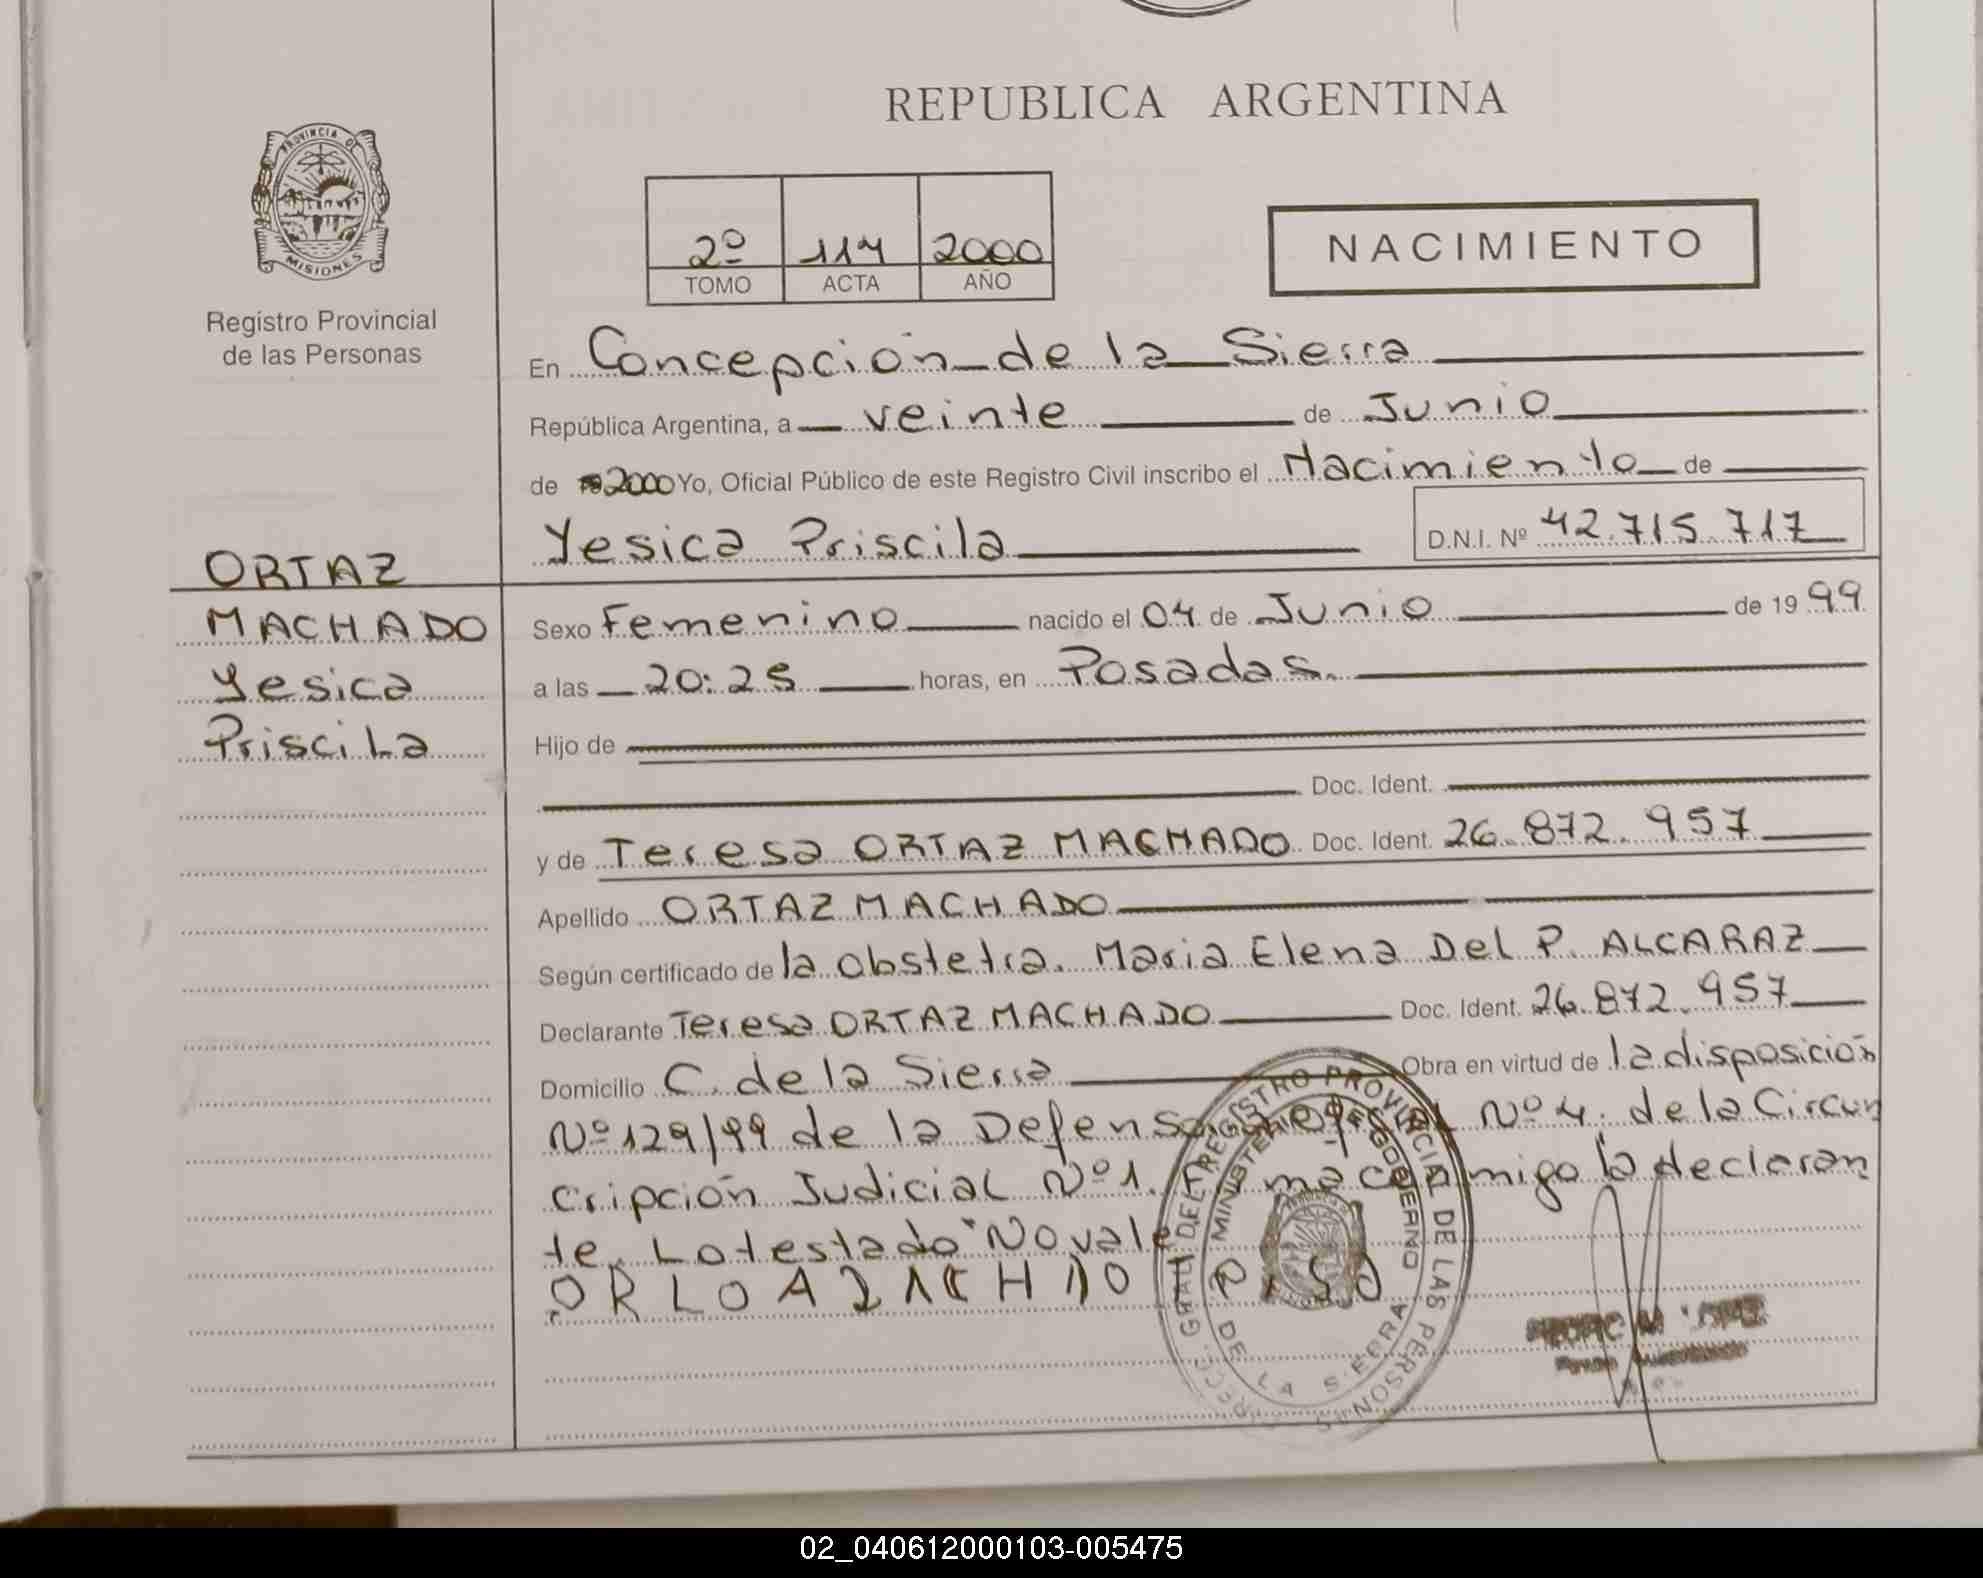 REPUBLICA ARGENTINA
PROVINCIA DE
MISIONES
Registro Provincial
de las Personas
2º 114 2000
TOMO ACTA AÑO
NACIMIENTO
En Concepción de la Sierra
República Argentina, a veinte de Junio
de 2000 Yo, Oficial Público de este Registro Civil inscribo el Nacimiento de
Yesica Priscila D.N.I. Nº 42.715.717
ORTAZ
MACHADO
Yesica
Priscila
Sexo Femenino nacido el 04 de Junio de 1999
a las 20:25 horas, en Posadas.
Hijo de
Doc. Ident.
y de Teresa ORTAZ MACHADO Doc. Ident. 26.872.957
Apellido ORTAZ MACHADO
Según certificado de la obstetra. Maria Elena Del P. ALCARAZ
Declarante Teresa ORTAZ MACHADO Doc. Ident. 26.872.957
Domicilio C. de la Sierra Obra en virtud de la disposición
Nº 129/99 de la Defensoria Oficial Nº 4. de la Circun
cripción Judicial Nº 1. Firma conmigo la declaran
te. Lo testado "No vale
DE LA SIERRA
MINISTERIO DE GOBIERNO
DEL REGISTRO PROVINCIAL DE LAS PERSONAS
02_040612000103-005475